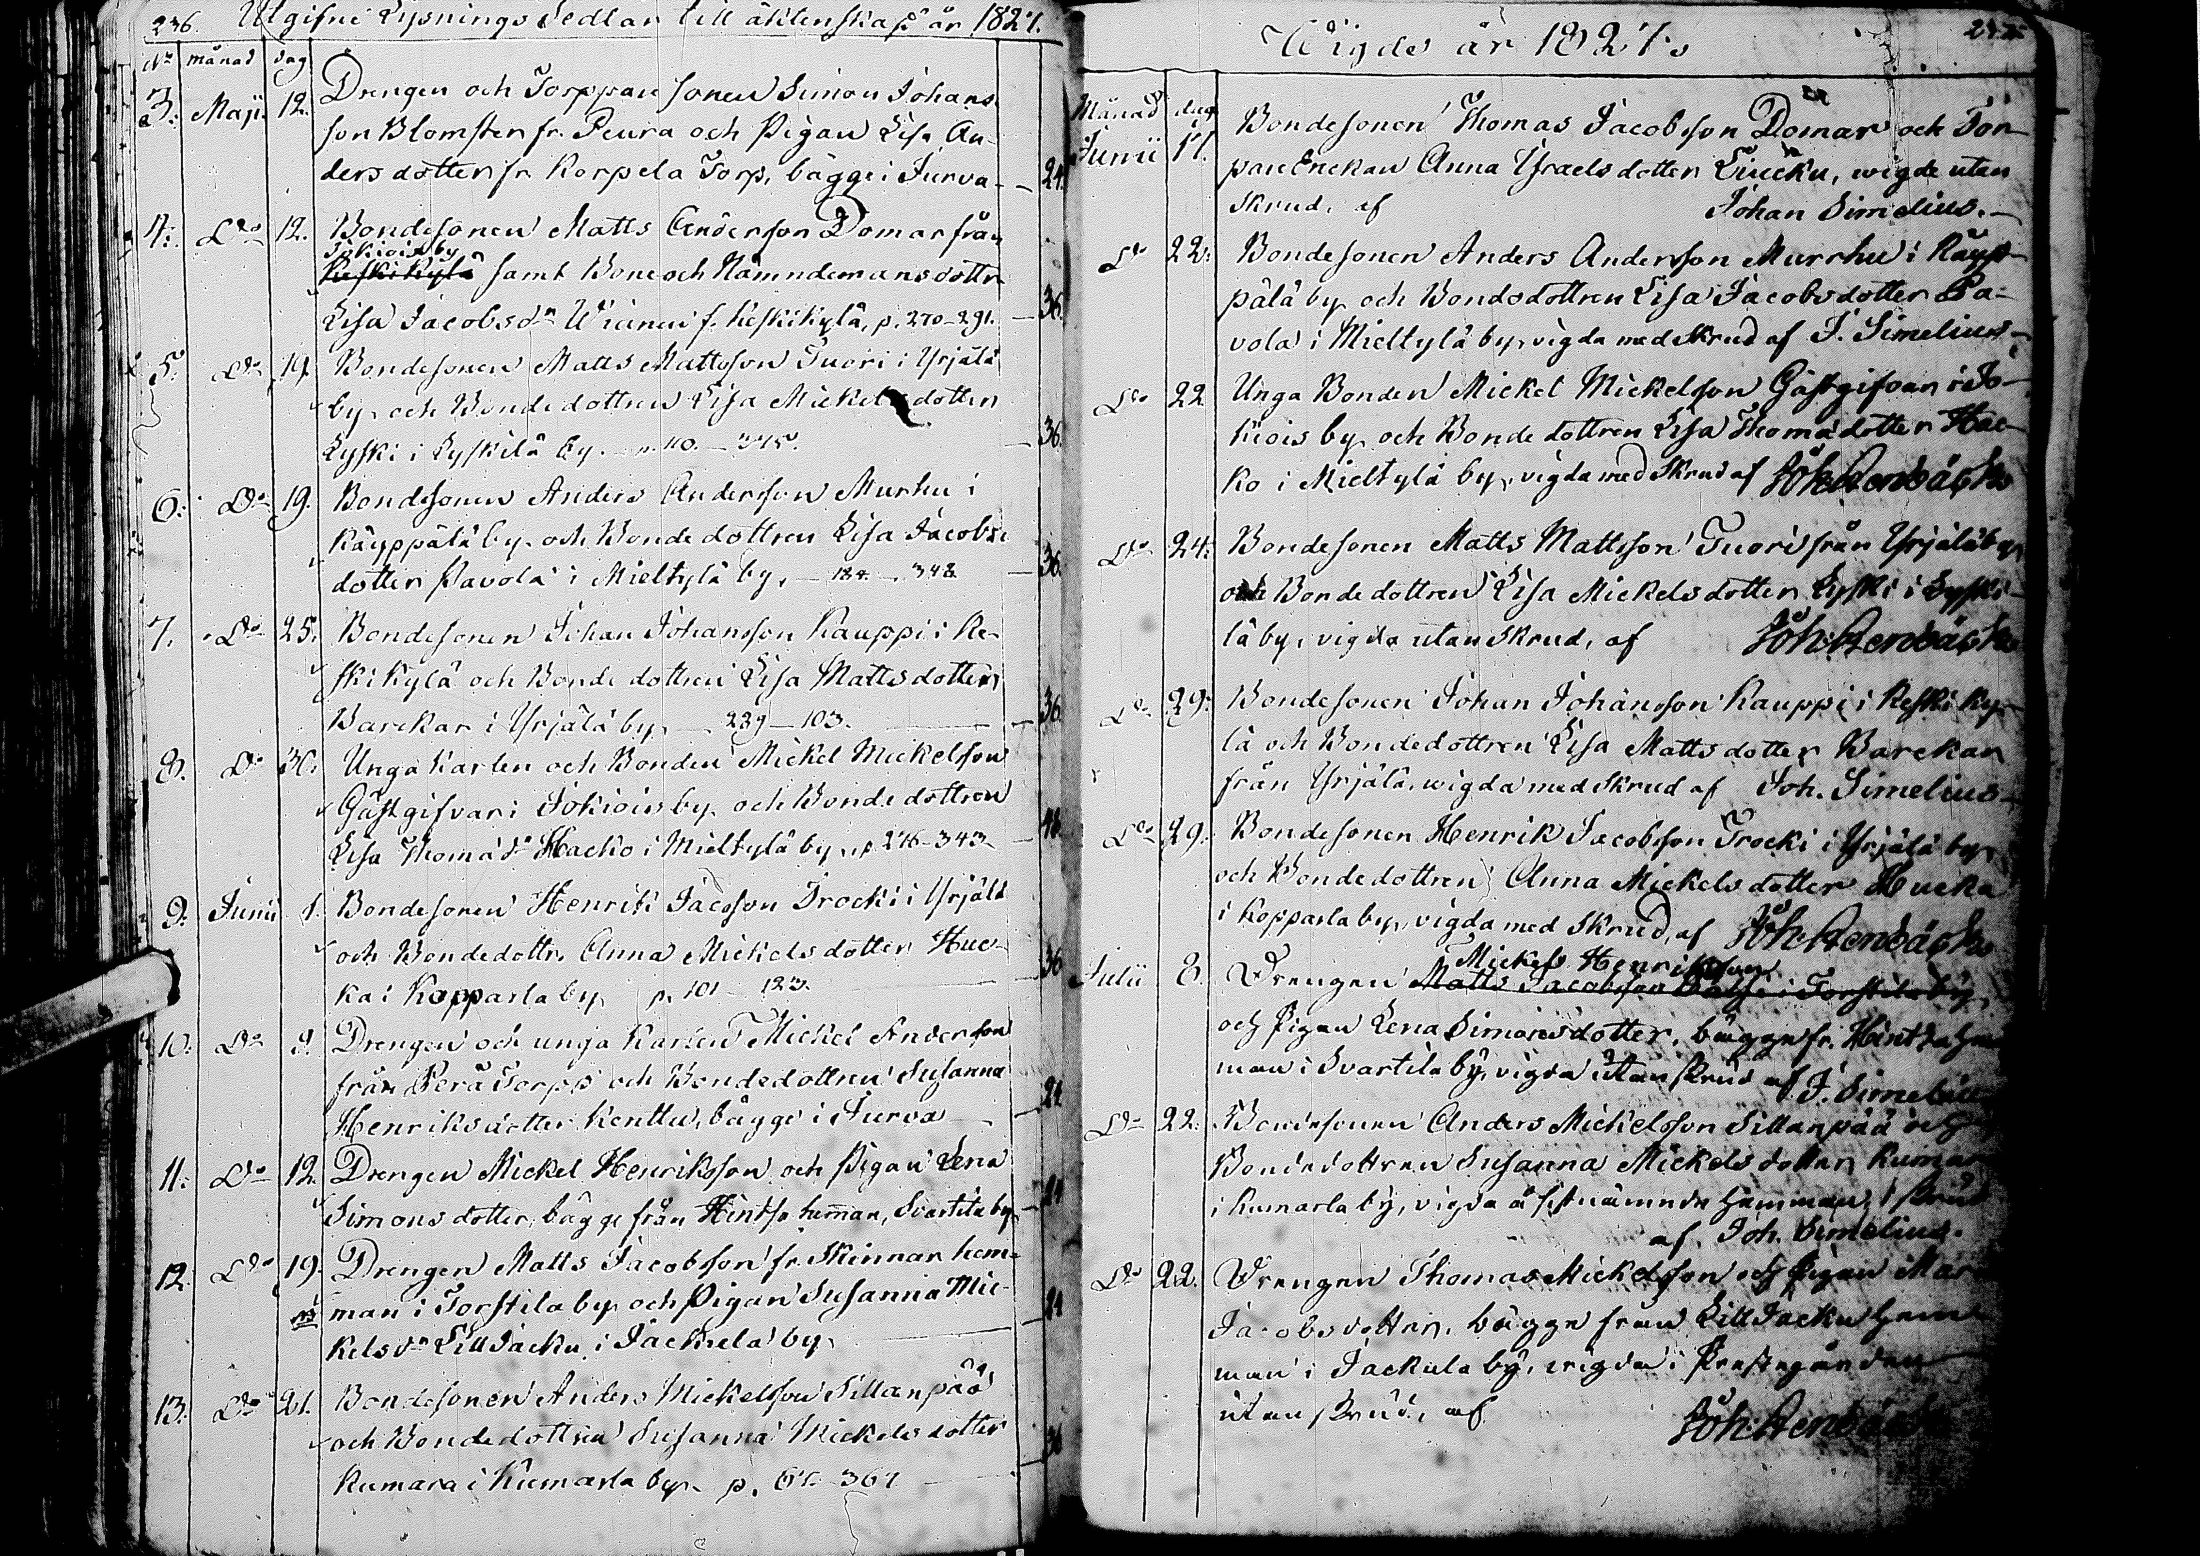 236. Utgifne Lysnings Sedlar till äktenskap år 1827.
No månad dag
3: Maji. 12. Drengen och Torppare sonen Simon Johans
son Blomster fr. Peura och Pigan Lisa An-
ders dotter fr. Korpela Torp, bägge i Jurva - 24.
4: Do 12. Bondesonen Matts Andersson Domar från
Jokiois by
Keskikylä samt Bone och Nämndemans dottr
Lisa Jacobsdr f. Keskikylä, p. 270-291. 36.
5: Do 19. Bondesonen Matts Mattsson Tuori i Yrjälä
by, och Bondedottren Lisa Mickelsdotter
Lyski i Lyskilä by. - p. 110. - 375. 36.
6: Do 19. Bondesonen Anders Andersson Murhu i
Käyppälä by och Bondedottren Lisa Jacobs
dotter Pavola i Mieltylä by, - 184. - 348 36.
7. Do 25. Bondesonen Johan Johansson Kauppi i Ke-
skikylä och Bondedottren Lisa Mattsdotter
Barckar i Yrjälä by, - 239 - 103. 36.
8. Do 30. Unga Karlen och Bonden Mickel Mickelsson
Gästgifvar i Jokiois by och Bondedottren
Lisa Thomædr Hacko i Mieltylä by, p. 276-343 48.
9. Junii 1. Bondesonen Henrik Jacosson Trocki i Yrjälä
och Bondedottr. Anna Mickelsdotter Huc-
ka i Kopparla by p. 101 - 123. 36
10. Do 9. Drengen och unga Karlen Mickel Andersson
från Perä Torpp och Bondedottren Susanna
Henriksdotter Kenttu, bägge i Jurva 24
11: Do 12. Drengen Mickel Henriksson och Pigan Lena
Simonsdotter, bägge från Hintsa heman, Svartila by 24
12. Do 19. Drengen Matts Jacobsson fr. Skinnar hem-
man i Torstila by och Pigan Susanna Mic-
kelsdr LillJacku i Jackula by 24
13. Do 21. Bondesonen Anders Mickelsson Sillanpää
och Bondedottren Susanna Mickelsdotter
Kumara i Kumarla by p. 67 - 367 36
Wigde år 1827:
Månad dag
Junii 17. Bondesonen Thomas Jacobsson Domar och Tor-
pare Enckan Anna Ysraelsdotter, wigde utan
Skrud, af Johan Simelius.
Do 22: Bondesonen Anders Andersson Murrhu i Käyp-
pälä by och Bondedottren Lisa Jacobsdotter Pa-
vola i Mieltylä by, vigda med Skrud af J. Simelius
Do 22 Unga Bonden Mickel Mickelsson Gästgifvar i Jo-
kiois by och Bondedottren Lisa Thomædotter Hac-
ko i Mieltylä by, vigda med Skrud af Joh: Aenbäck
Do 24: Bondesonen Matts Mattsson Tuori från Yrjälä by
och Bondedottren Lisa Mickelsdotter Lyski i Lyski-
lä by, vigda utan Skrud, af Joh: Aenbäck
Do 29: Bondesonen Johan Johansson Kauppi i Keskiky-
lä och Bondedottren Lisa Mattsdotter Barckar
från Yrjälä, wigda med Skrud af Joh. Simelius
Do 29: Bondesonen Henrik Jacobsson Trocki i Yrjälä by
och Bondedottren Anna Mickelsdotter Hucka
i Kopparla by, vigda med Skrud, af Joh: Aenbäck
Mickel Henriksson
Julii 8. Drengen Matts Jacobsson i Torstila by
och Pigan Lena Simonsdotter, bägge fr. Hintsa hem
man i Svartila by, vigda utan Skrud af J. Simelius
Do 22: Bondesonen Anders Mickelsson Sillanpää och
Bondedottren Susanna Mickelsdotter Kumar
i Kumarla by, vigda å sistnämnde Hemman, i Skrud
af Joh. Simelius.
Do 22. Drengen Thomas Mickelsson och Pigan Mar
Jacobsdotter, bägge från LillJacku Hem
man i Jackula by, wigda i Prestegården
utan Skrud, af Joh: Aenbäck